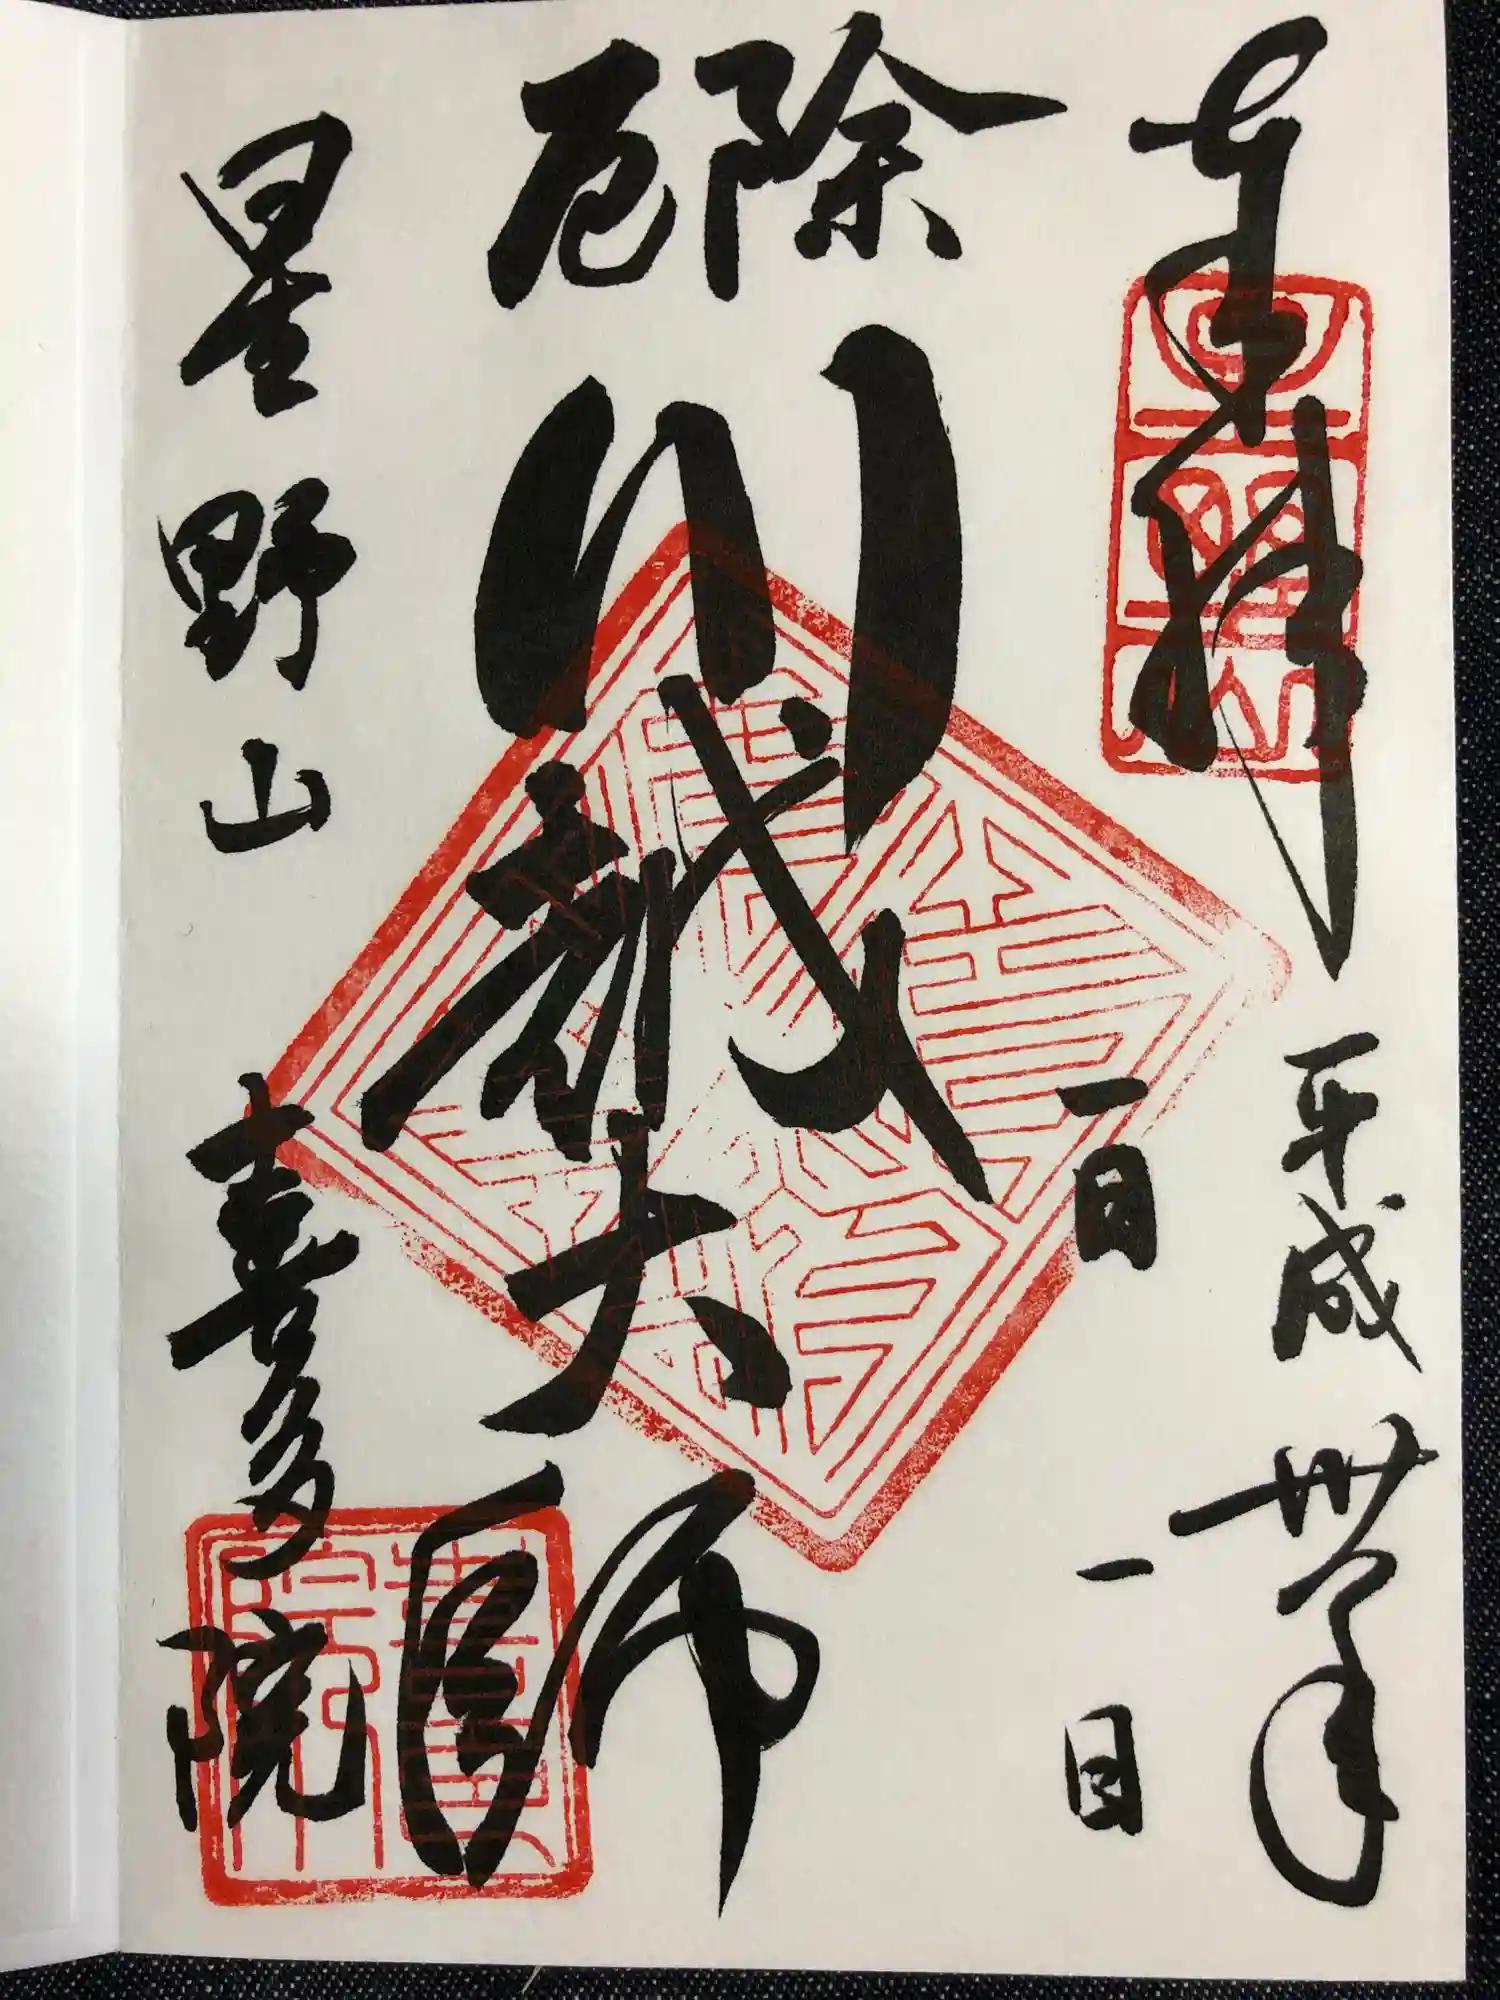 奉拝
平成卅一年
一月一日
厄除
川越大師
星野山
喜多院